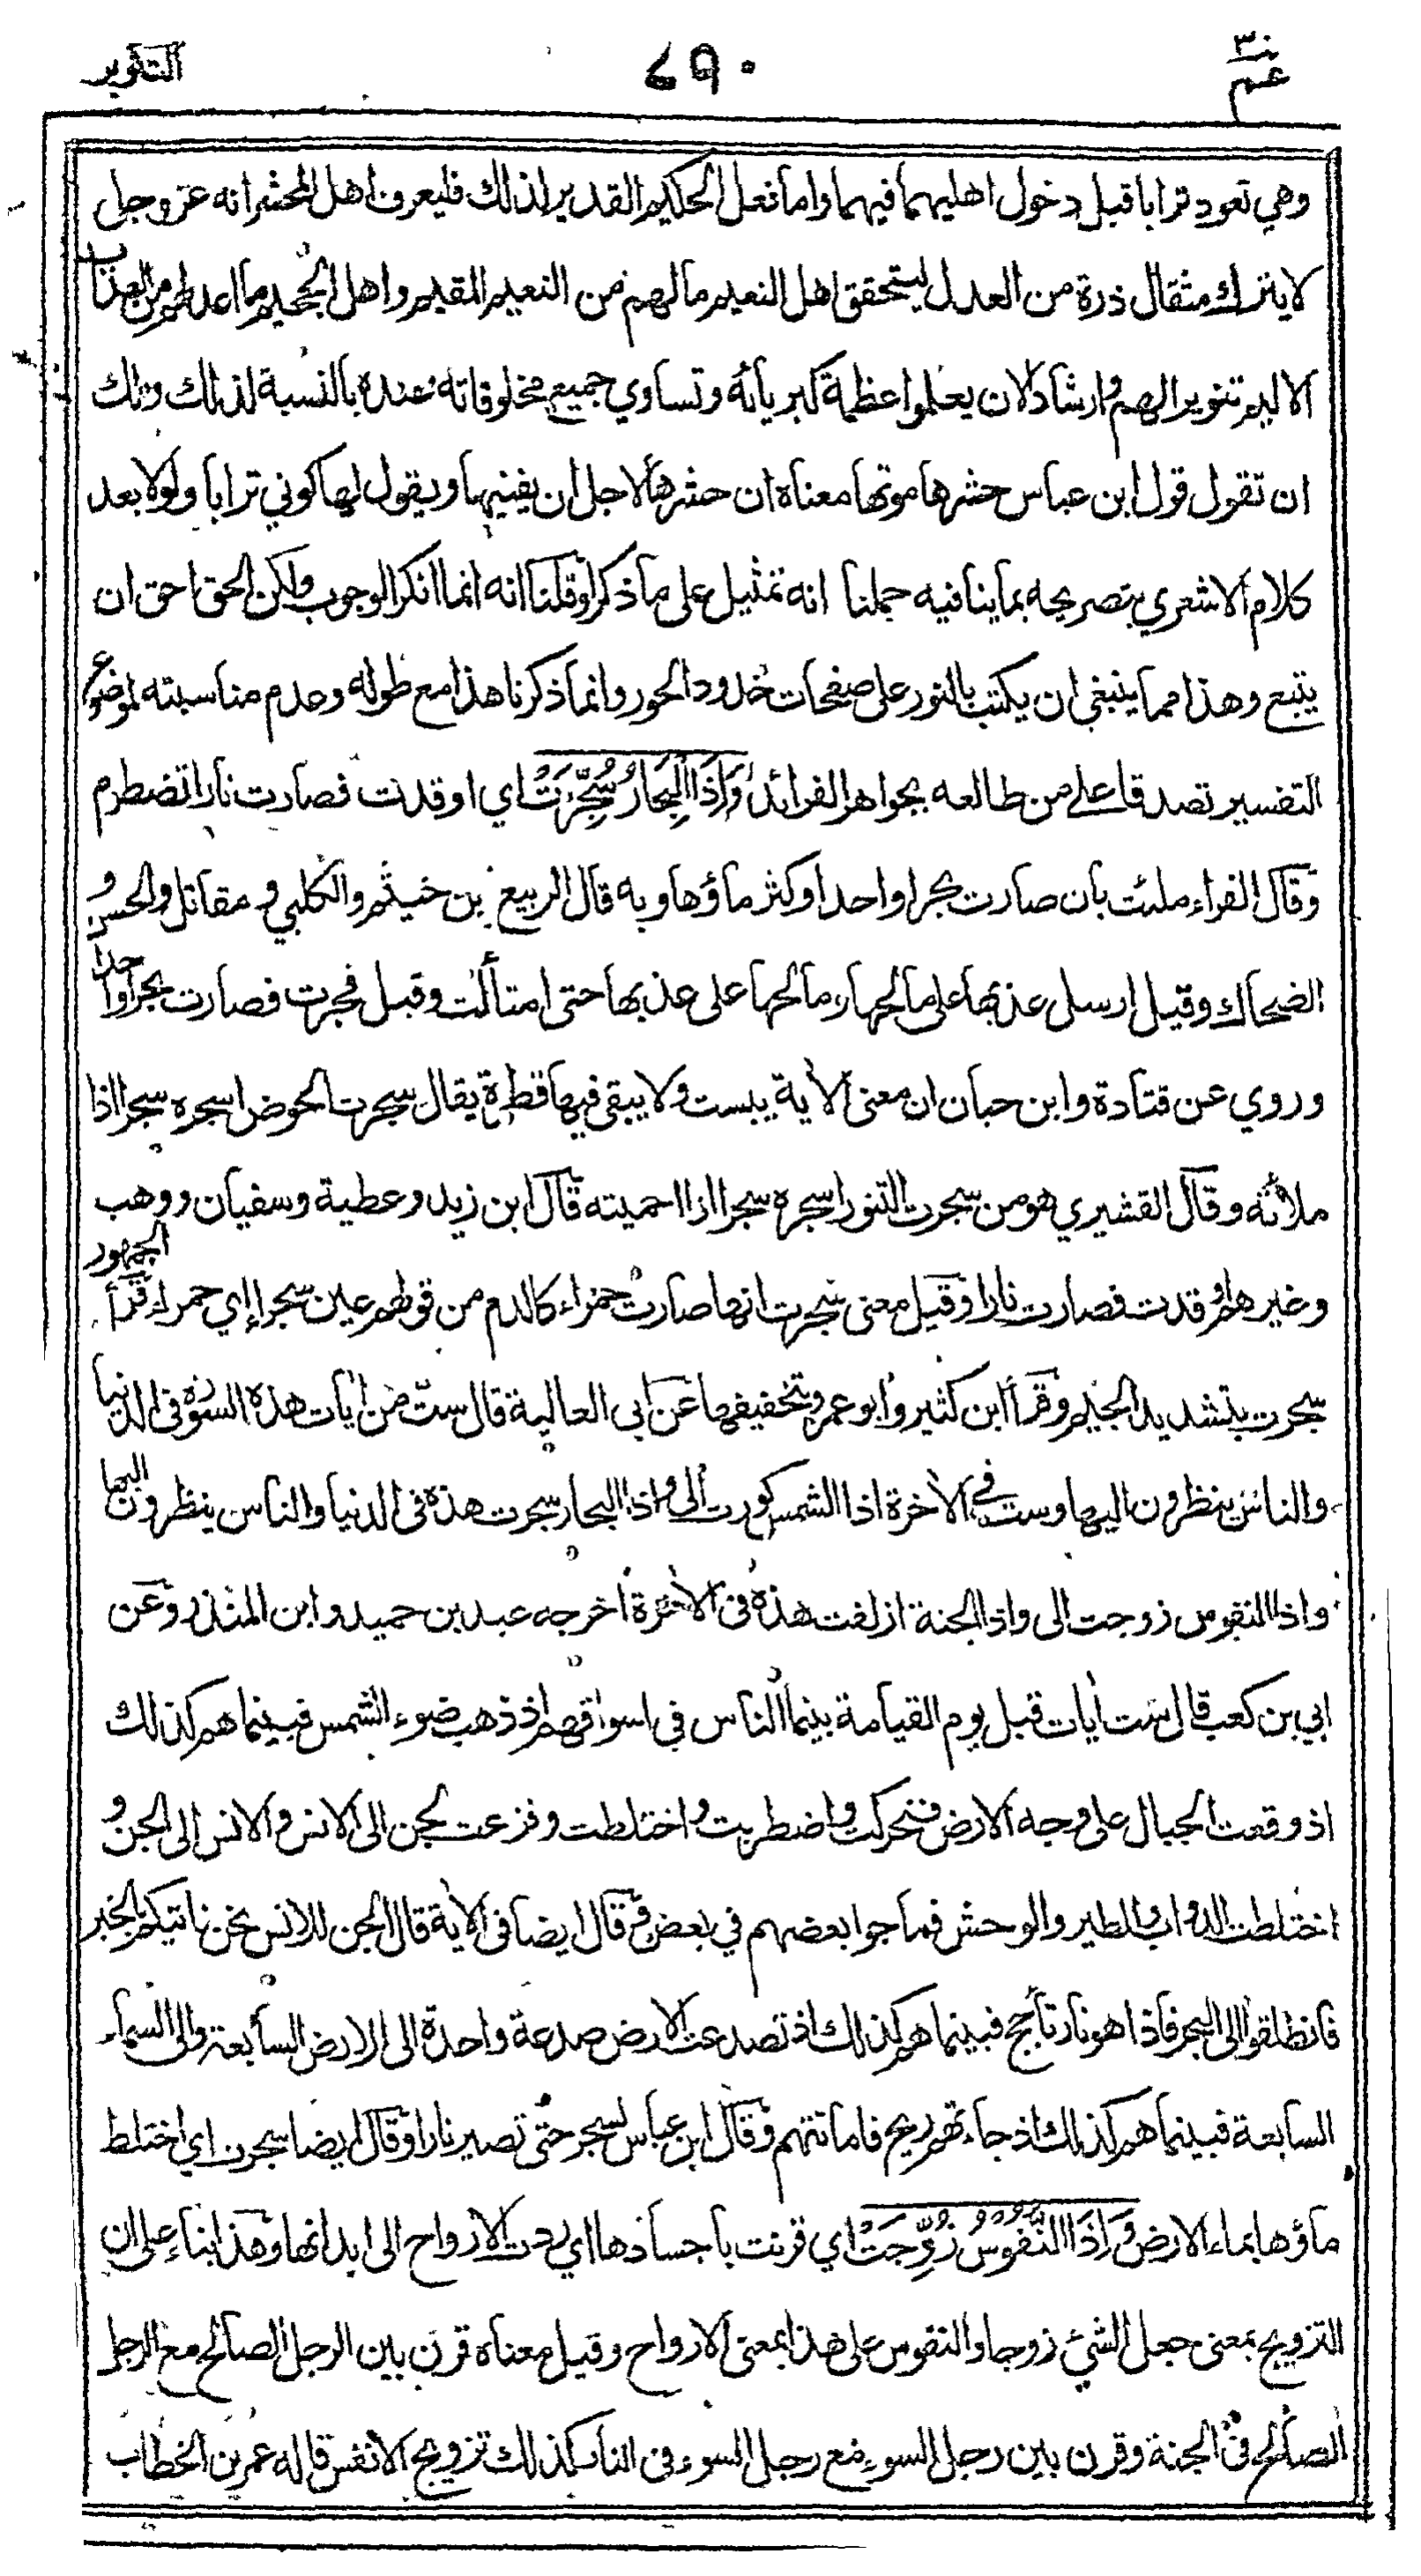 عم
٢٩٠
التكوير
وهي تعود ترابا قبل دخول اهليهما فيهما وانما فعل الحكيم القدير لذلك فليعرف اهل المحشر انه عز وجل
لا يترك مثقال ذرة من العدل ليتحقق اهل النعيم ما لهم من النعيم المقيم واهل الجحيم ما اعد لهم من العذاب
الاليم تنويرا لهم وارشادا لان يعلموا عظمة كبريائه وتساوي جميع مخلوقاته عنده بالنسبة لذلك ولك
ان تقول قول ابن عباس حشرها موتها معناه ان حشرها لاجل ان يفنيها ويقول لها كوني ترابا ولولا بعد
كلام الاشعري بتصريحه بما ينافيه حملنا انه تمثيل على ما ذكر او قلنا انه انما انكر الوجوب ولكن الحق احق ان
يتبع وهذا مما ينبغي ان يكتب بالنور على صفحات خدود الحور وانما ذكرنا هذا مع طوله وعدم مناسبته لموضوع
التفسير تصدقا على من طالعه بجواهر الفرائد وَاِذَا الْبِحَارُ سُجِّرَتْ اي اوقدت فصارت نارا تضطرم
وقال الفراء ملئت بان صارت بحرا واحدا وكثر ماؤها وبه قال الربيع بن خيثم والكلبي ومقاتل والحسن و
الضحاك وقيل ارسل عذبها على مالحها ومالحها على عذبها حتى امتألت وقيل فجرت فصارت بحرا واحدا
وروي عن قتادة وابن حبان ان معنى الاية يبست ولا يبقى فيها قطرة يقال سجرت الحوض اسجره سجرا اذا
ملأته وقال القشيري هو من سجرت التنور اسجره سجرا اذا احميته قال ابن زيد وعطية وسفيان ووهب
وغيرهم اوقدت فصارت نارا وقيل معنى سجرت انها صارت حمراء كالدم من قولهم عين سجراء اي حمراء قرأ الجمهور
سجرت بتشديد الجيم وقرأ ابن كثير وابو عمرو بتخفيفها عن ابي العالية قال ستّ من أيات هذه السورة في الدنيا
والناس ينظرون اليها وست في الأخرة اذا الشمس كورت الى واذا البحار سجرت هذه في الدنيا والناس ينظرون اليها
واذا النفوس زوجت الى واذا الجنة ازلفت هذه في الأخرة اخرجه عبد بن حميد وابن المنذر وعن
ابي بن كعب قال ست أيات قبل يوم القيامة بينما الناس في اسواقهم اذ ذهب ضوء الشمس فبينما هم كذلك
اذ وقعت الجبال على وجه الارض فتحركت واضطربت واختلطت وفزعت الجن الى الانس والانس الى الجن و
اختلطت الدواب والطير والوحش فماجوا بعضهم في بعض وقال ايضا في الأية قال الجن للانس نحن نأتيكم بالخبر
فانطلقوا الى البحر فاذا هو نار تأجج فبينما هم كذلك اذ تصدعت الارض صدعة واحدة الى الارض السابعة والى السماء
السابعة فبينما هم كذلك اذ جاءتهم ريح فاماتتهم وقال ابن عباس تسجر حتى تصير نارا وقال ايضا سجرت اي اختلط
ماؤها بماء الارض وَاِذَا النُّفُوْسُ زُوِّجَتْ اي قرنت باجسادها اي ردت الارواح الى ابدانها وهذا بناء على ان
التزويج بمعنى جعل الشيئ زوجا والنفوس على هذا بمعنى الارواح وقيل معناه قرن بين الرجل الصالح مع الرجل
الصالح في الجنة وقرن بين رجل السوء مع رجل السوء في النار كذلك تزويج الانفس قاله عمر بن الخطاب